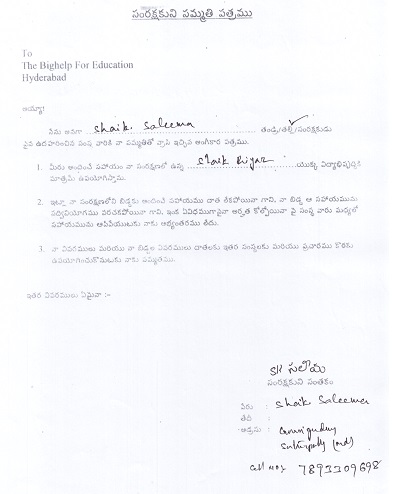 సంరక్షకుని సమ్మతి పత్రము
To
The Bighelp For Education
Hyderabad
అయ్యా!
నేను అనగా Shaik. Saleema తండ్రి/తల్లి/సంరక్షకుడు
పైన ఉదహరించిన సంస్థ వారికి నా సమ్మతితో వ్రాసి ఇచ్చిన అంగీకార పత్రము.
1. మీరు అందించే సహాయం నా సంరక్షణలో ఉన్న Shaik యొక్క విద్యాభివృద్ధికి
మాత్రమే ఉపయోగిస్తాను.
2. ఇట్లా నా సంరక్షణలోని బిడ్డకు అందించే సహాయము దాత లేకపోయినా గాని, నా బిడ్డ ఆ సహాయమును
సద్వినియోగము పరచకపోయినా గాని, ఇంక ఏవిధముగానైనా అర్హత కోల్పోయినా పై సంస్థ వారు మధ్యలో
సహాయమును ఆపివేయుటకు నాకు అభ్యంతరము లేదు.
3. నా వివరములు మరియు నా బిడ్డల వివరములు దాతలకు ఇతర సంస్థలకు మరియు ప్రచారము కొరకు
ఉపయోగించుకొనుటకు నాకు సమ్మతము.
ఇతర వివరములు ఏమైనా :-
SK సలీమ
సంరక్షకుని సంతకం
పేరు : Shaik Saleema
తేదీ :
అడ్రసు :
Cell No: 7893309698